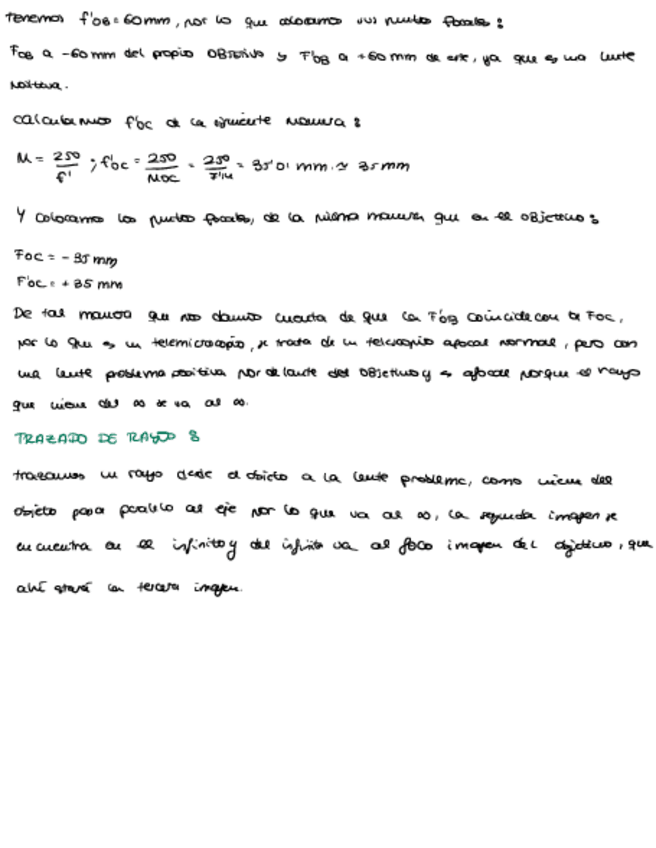 Tenemos f'OB = 60 mm, por lo que colocamos sus puntos focales:
FOB a -60 mm del propio OBJETIVO y F'OB a +60 mm de este, ya que es una lente
positiva.
Calculamos f'OC de la siguiente manera:
M = 250/f' ; f'OC = 250/MOC = 250/7'14 = 35'01 mm ≈ 35 mm
Y colocamos los puntos focales, de la misma manera que en el OBJETIVO:
FOC = -35 mm
F'OC = +35 mm
De tal manera que nos damos cuenta de que la F'OB coincide con la FOC,
por lo que es un telemicroscopio, se trata de un telescopio afocal normal, pero con
una lente problema positiva por delante del OBJETIVO y es afocal porque el rayo
que viene del ∞ se va al ∞.
TRAZADO DE RAYOS:
trazamos un rayo desde el objeto a la lente problema, como viene del
objeto pasa paralelo al eje por lo que va al ∞, la segunda imagen se
encuentra en el infinito y del infinito va al foco imagen del objetivo, que
ahí estará la tercera imagen.